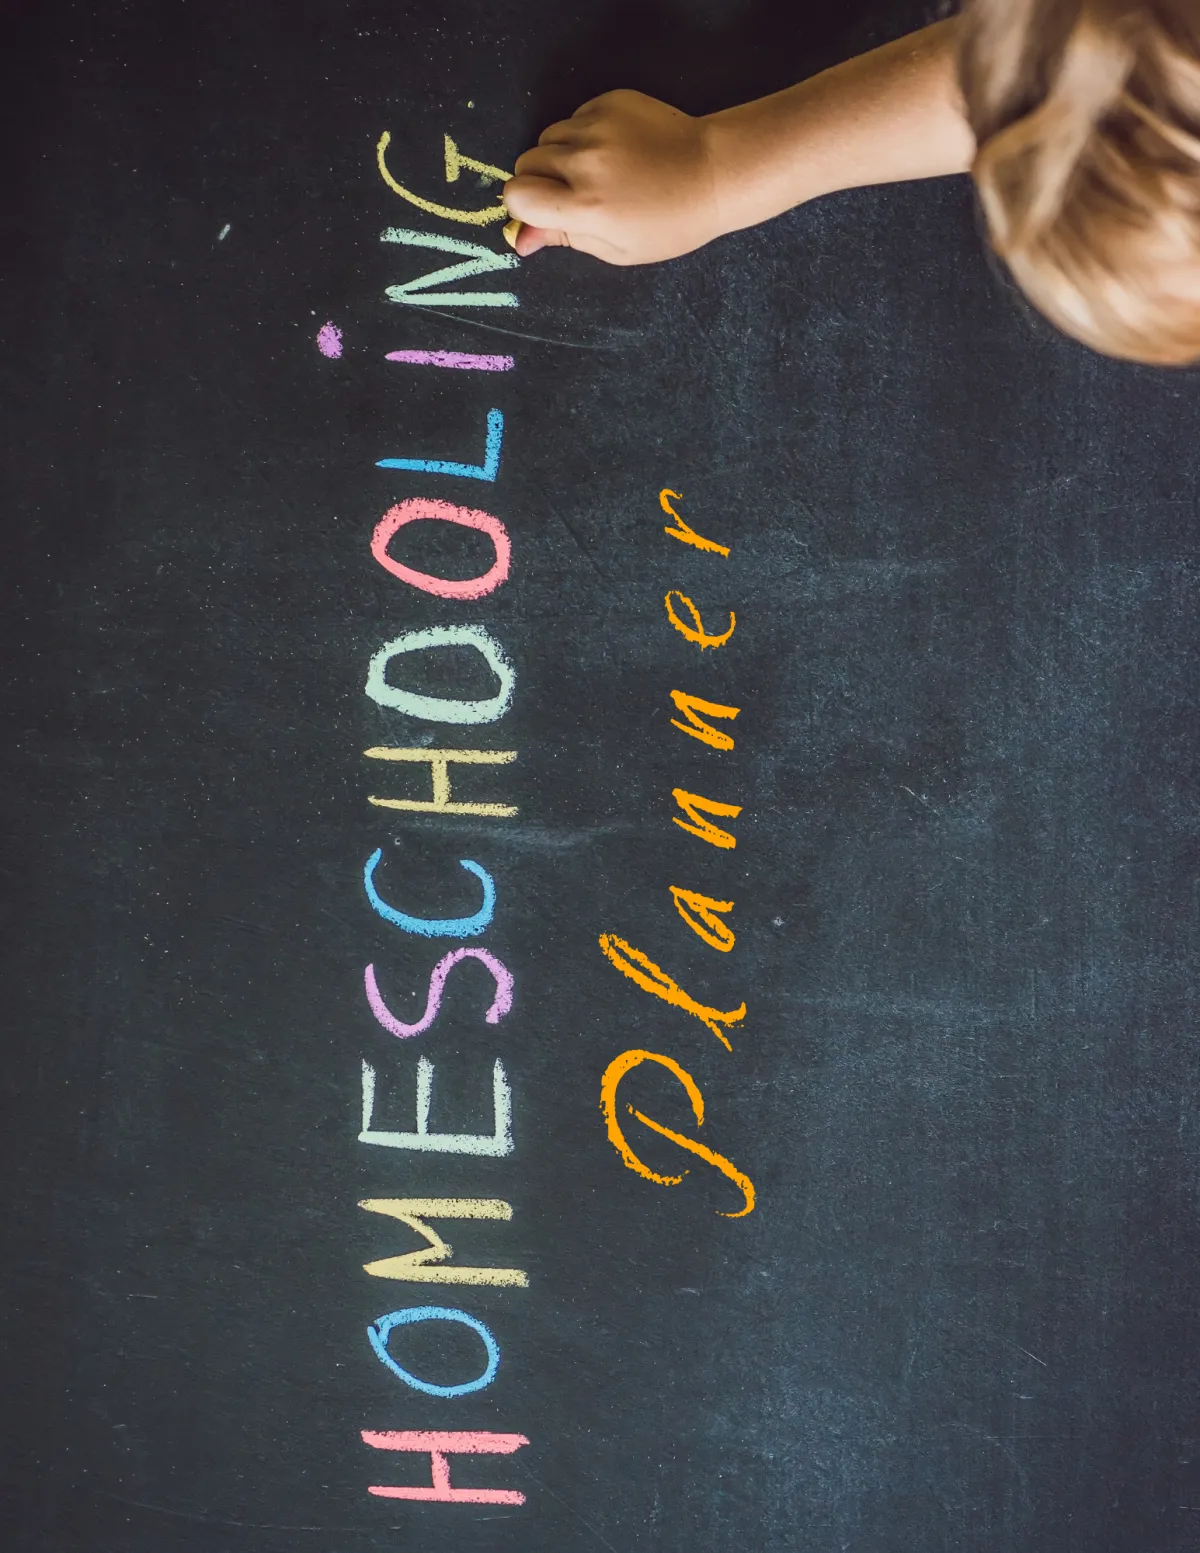 HOMESCHOOLiNG
Planner